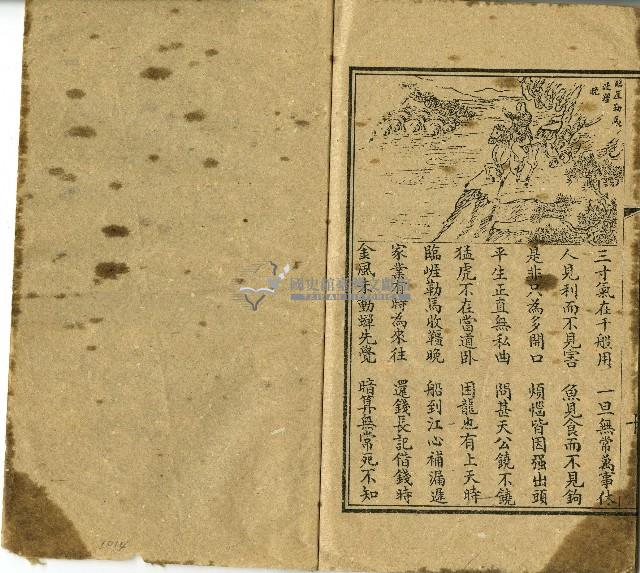 臨崖勒馬
收韁
晚
三寸氣在千般用 一旦無常萬事休
人見利而不見害 魚見食而不見鉤
是非只為多開口 煩惱皆因强出頭
平生正直無私曲 問甚天公饒不饒
猛虎不在當道卧 困龍也有上天時
臨崕勒馬收韁晚 船到江心補漏遲
家業有時為來往 還錢長記借錢時
金風未動蟬先覺 暗算無常死不知
國史館臺灣文獻館
TAIWAN HISTORICA
1014